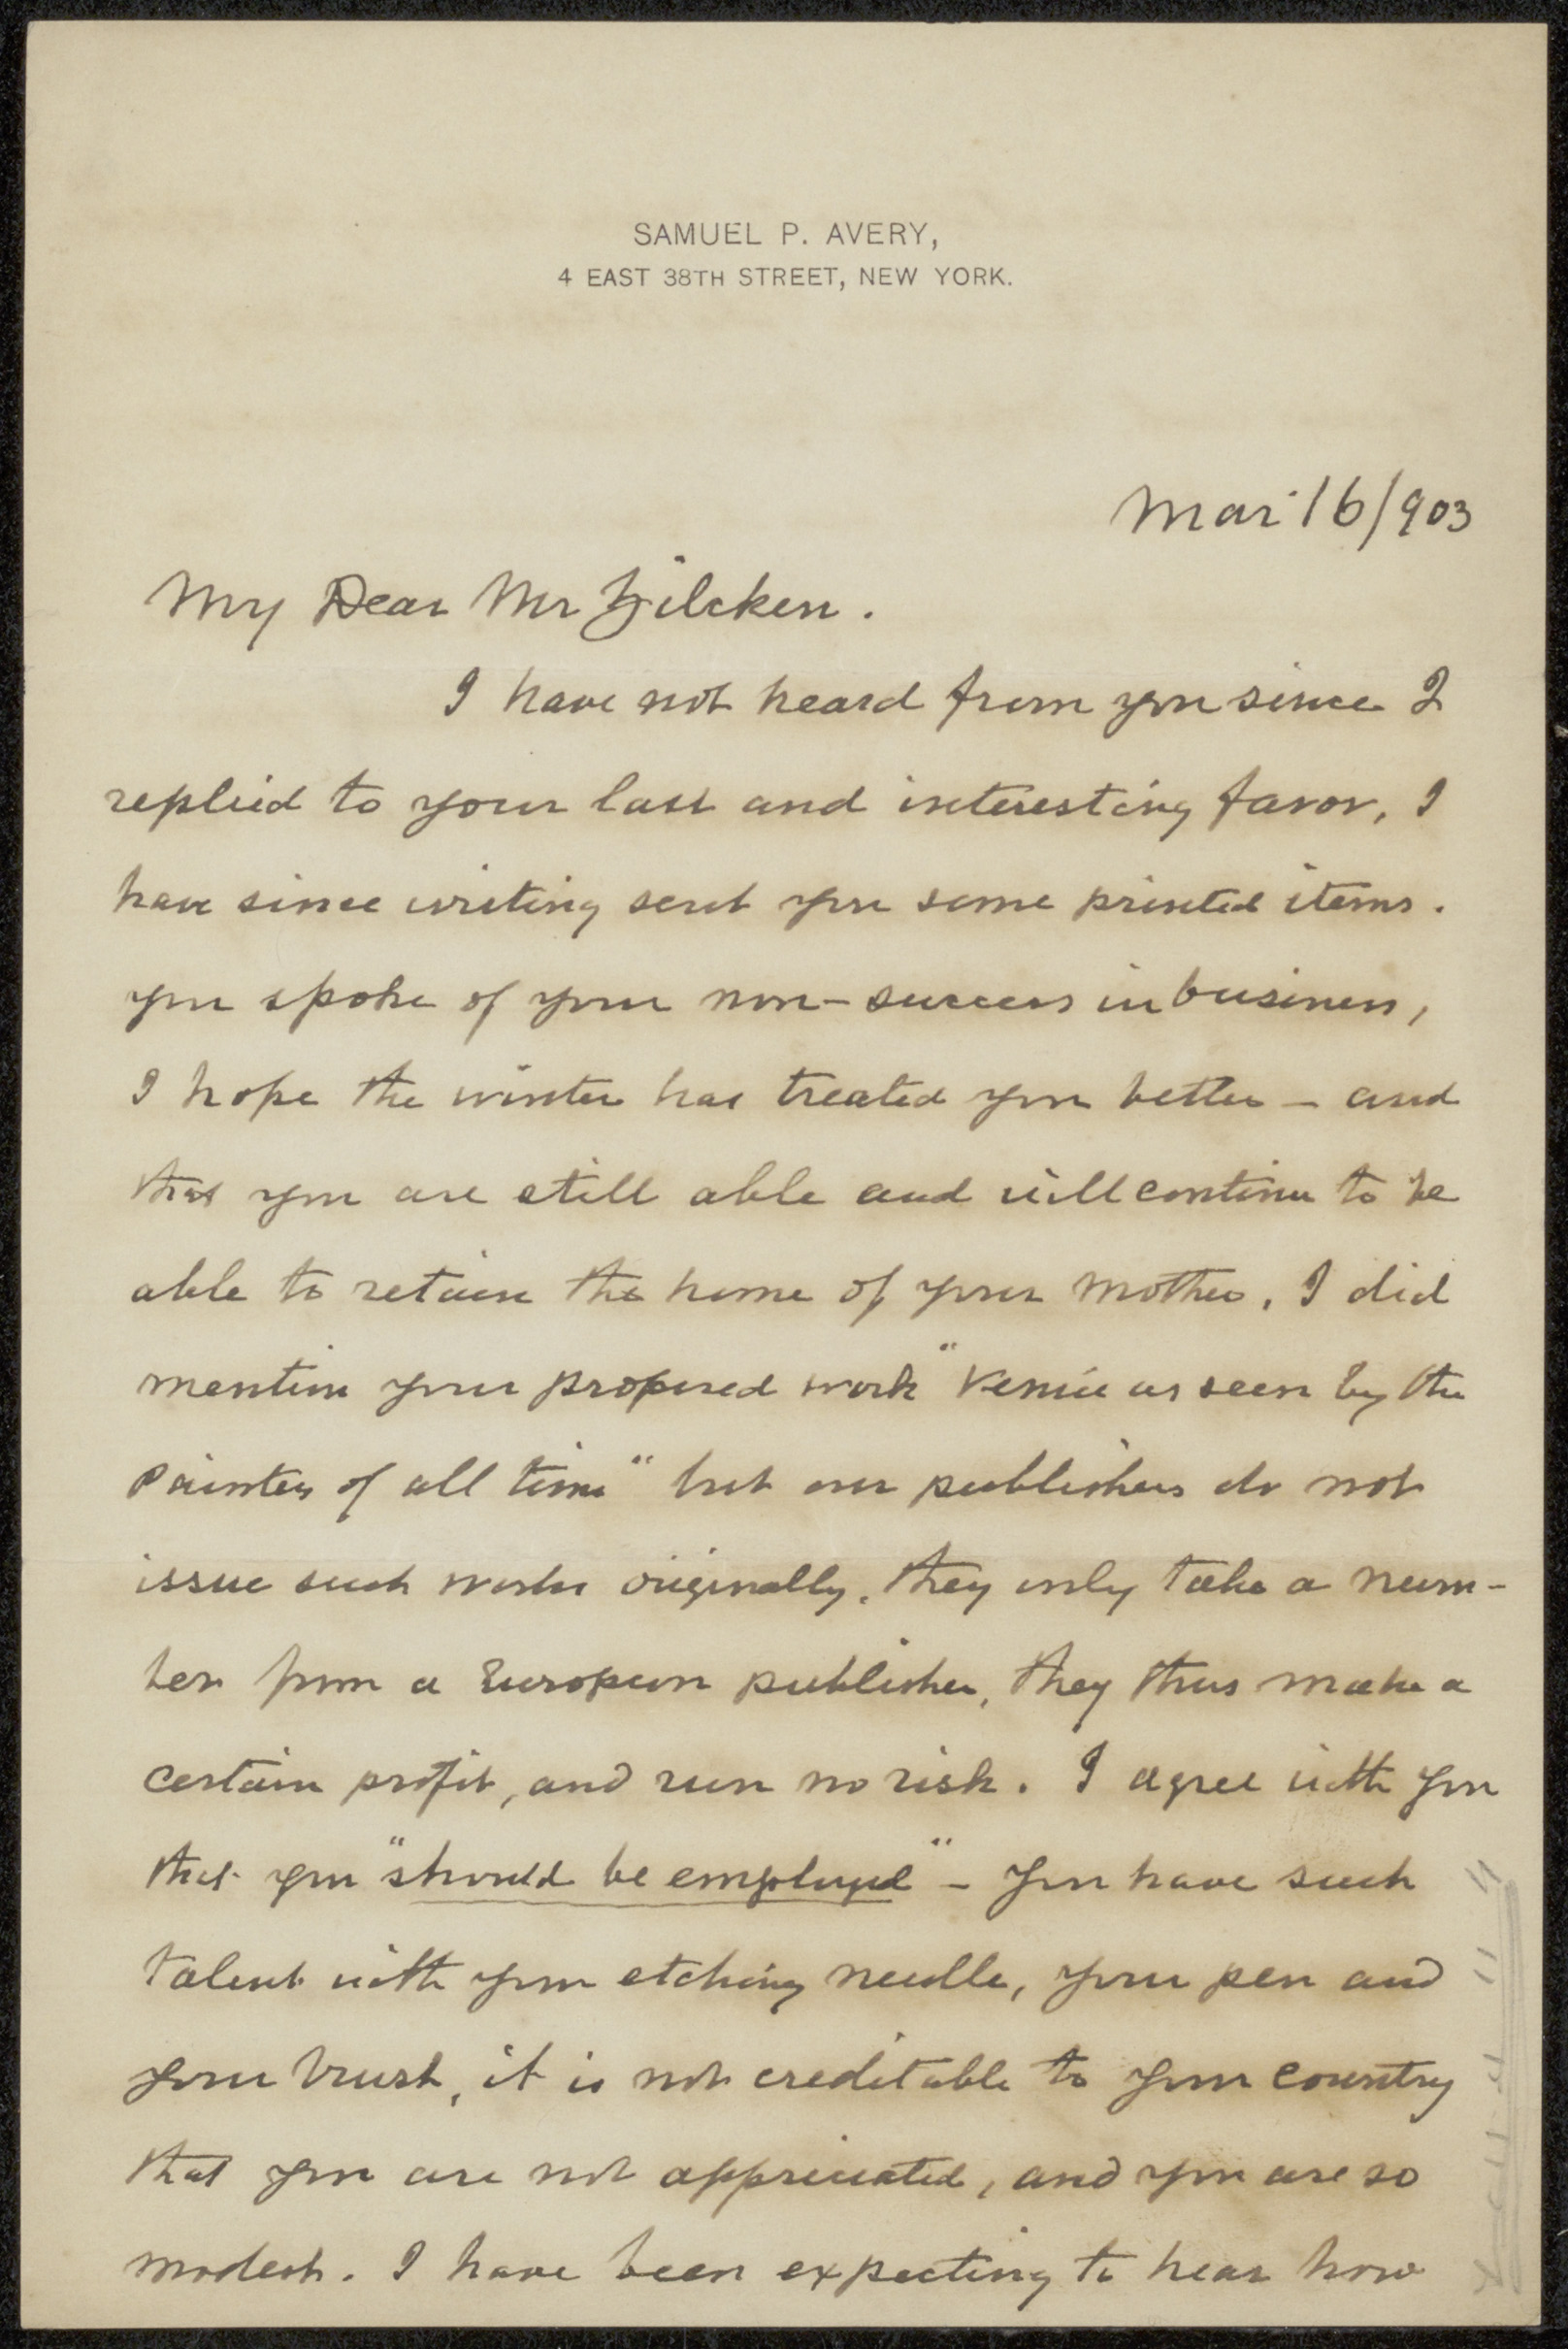 SAMUEL P. AVERY,
4 EAST 38TH STREET, NEW YORK.
Mar 16/903
My Dear Mr Zilcken.
I have not heard from you since I
replied to your last and interesting favor, I
have since writing sent you some printed items.
you spoke of your non-success in business,
I hope the winter has treated you better – and
that you are still able and will continu to be
able to retain the home of your mother, I did
mention your proposed work "Venice as seen by the
Painters of all time" but our publishers do not
issue such works originally, they only take a num-
ber from a European publisher, they thus make a
certain profit, and run no risk. I agree with you
that you "should be employed" – you have such
talent with your etching needle, your pen and
your brush, it is not creditable to your country
that you are not appreciated, and you are so
modest. I have been expecting to hear how